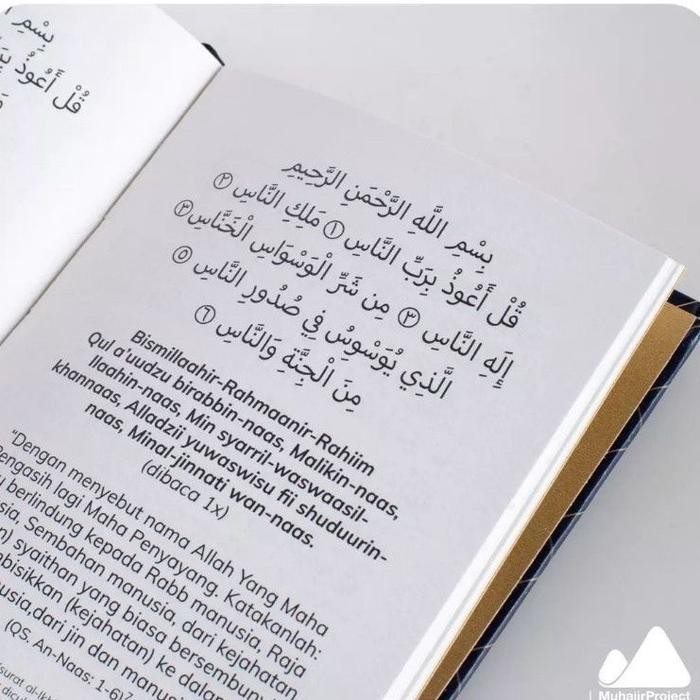 بِسْمِ
قُلْ أَعُوذُ
بِسْمِ اللَّهِ الرَّحْمَنِ الرَّحِيمِ
قُلْ أَعُوذُ بِرَبِّ النَّاسِ ١ مَلِكِ النَّاسِ ٢
إِلَهِ النَّاسِ ٣ مِن شَرِّ الْوَسْوَاسِ الْخَنَّاسِ ٣
الَّذِي يُوَسْوِسُ فِي صُدُورِ النَّاسِ ٥
مِنَ الْجِنَّةِ وَالنَّاسِ ٦
Bismillaahir-Rahmaanir-Rahiim
Qul a'uudzu birabbin-naas, Malikin-naas,
Ilaahin-naas, Min syarril-waswaasil-
khannaas, Alladzii yuwaswisu fii shuduurin-
naas, Minal-jinnati wan-naas.
(dibaca 1x)
"Dengan menyebut nama Allah Yang Maha
Pengasih lagi Maha Penyayang. Katakanlah:
berlindung kepada Rabb manusia, Raja
Sembahan manusia, dari kejahatan
syaithan yang biasa bersembunyi
(kejahatan) ke dalam
dari jin dan manusia
(QS. An-Naas: 1-6)
MuhajirProject